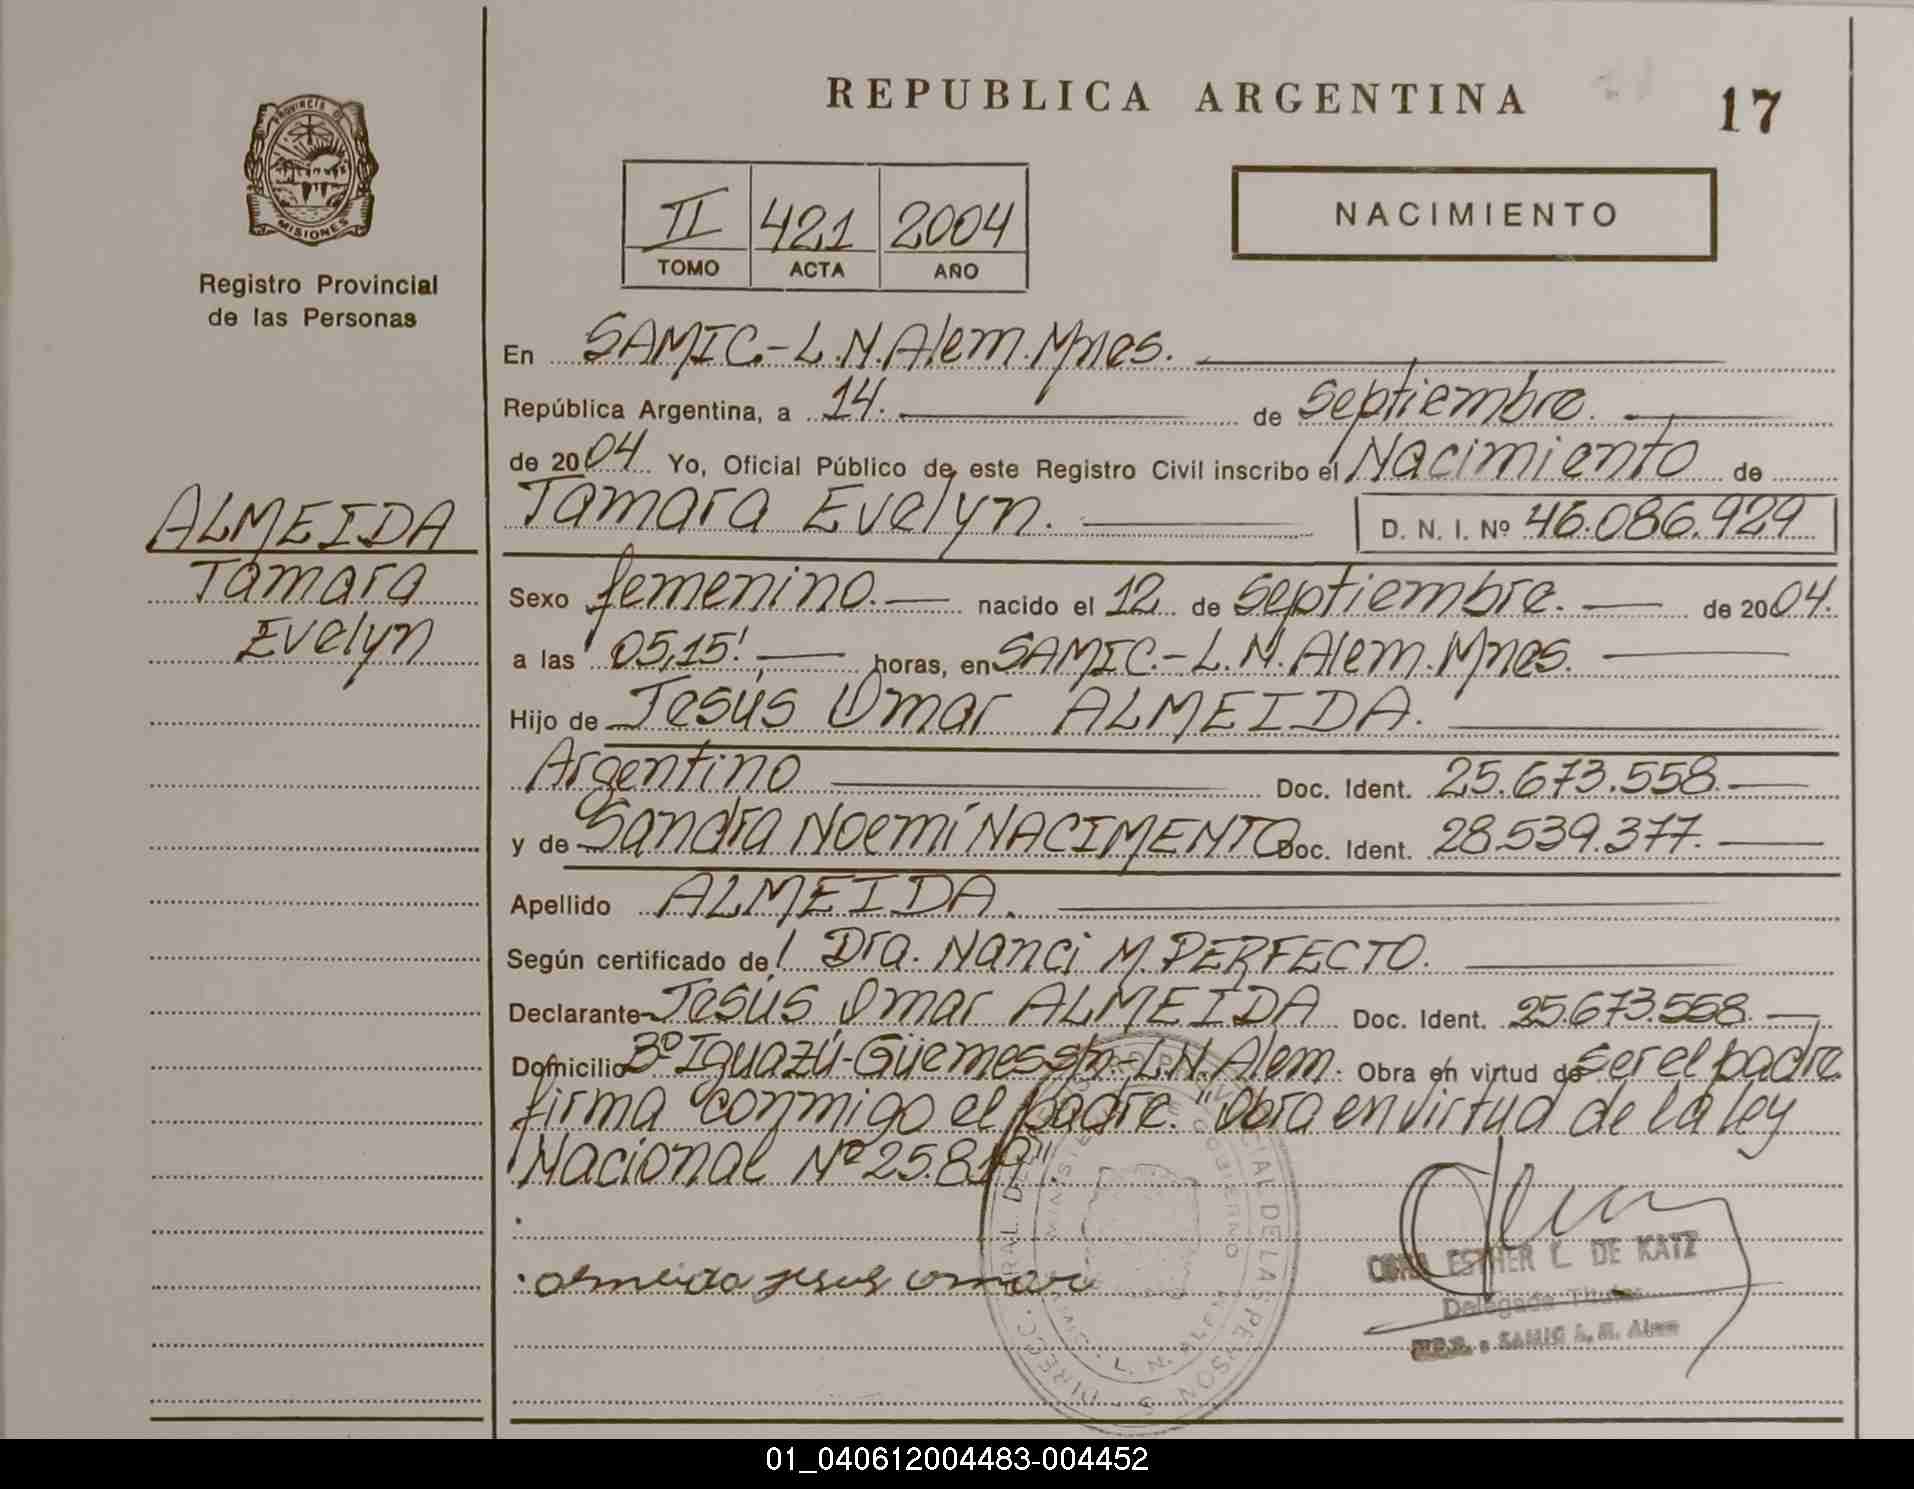 REPUBLICA ARGENTINA
17
PROVINCIA DE
MISIONES
Registro Provincial
de las Personas
II 421 2004
TOMO ACTA AÑO
NACIMIENTO
En SAMIC.-L.N.Alem.Mnes.
República Argentina, a 14. de septiembre.
de 2004 Yo, Oficial Público de este Registro Civil inscribo el Nacimiento de
Tamara Evelyn. D. N. I. Nº 46.086.929
ALMEIDA
Tamara
Evelyn
Sexo femenino. nacido el 12 de septiembre. de 2004.
a las 05,15'. horas, en SAMIC.-L.N.Alem.Mnes.
Hijo de Jesús Omar ALMEIDA.
Argentino Doc. Ident. 25.673.558.
y de Sandra Noemí NACIMENTO Doc. Ident. 28.539.377.
Apellido ALMEIDA.
Según certificado de Dra. Nanci M. PERFECTO.
Declarante Jesús Omar ALMEIDA Doc. Ident. 25.673.558.
Domicilio Bº Iguazú-Güemes s/n.-L.N.Alem. Obra en virtud de ser el padre
firma conmigo el padre. "Obra en virtud de la ley
Nacional Nº 25.819".
almeida jesus omar
ESTHER L. DE KATZ
Delegada Titular
SAMIC L. N. Alem
DIRECC. GRAL. DEL REG. PROVINCIAL DE LAS PERSONAS
MINISTERIO DE GOBIERNO
L. N. ALEM
01_040612004483-004452